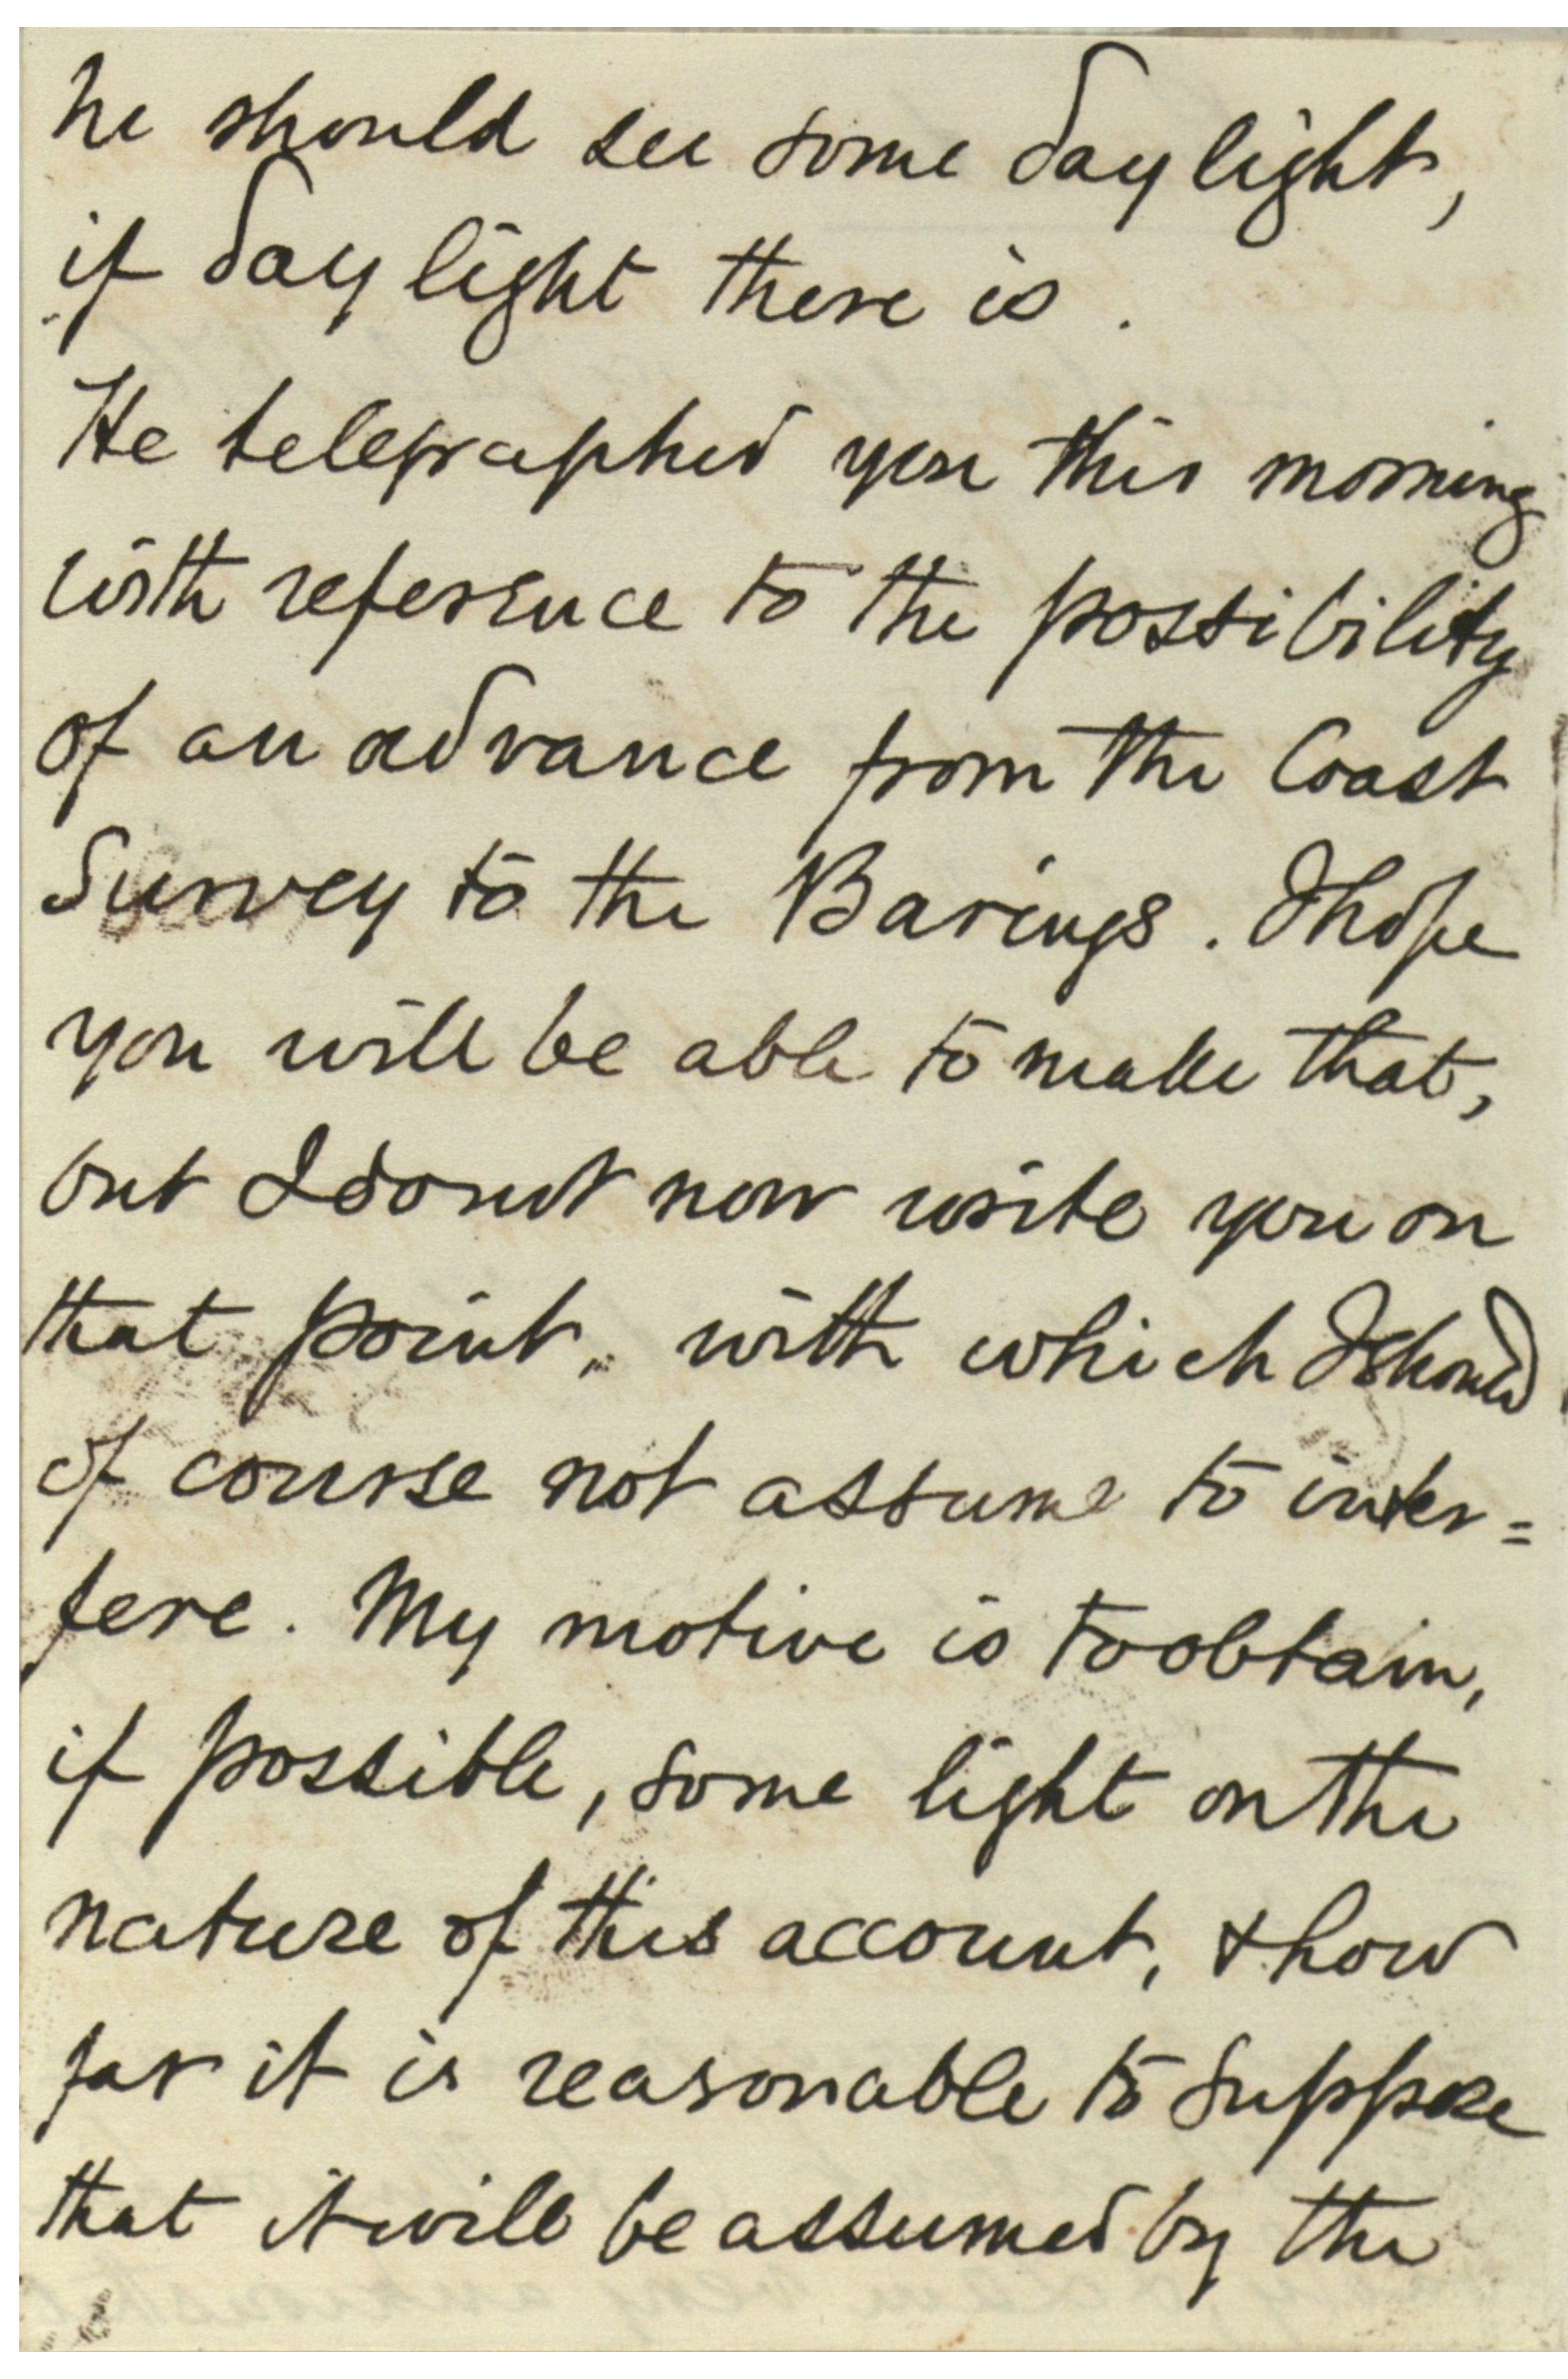 he should see some daylight,
if daylight there is.
He telegraphed you this morning
with reference to the possibility
of an advance from the Coast
Survey to the Barings. I hope
you will be able to make that,
but I do not now write you on
that point, with which I should
of course not assume to inter=
fere. My motive is to obtain,
if possible, some light on the
nature of this account, & how
far it is reasonable to suppose
that it will be assumed by the